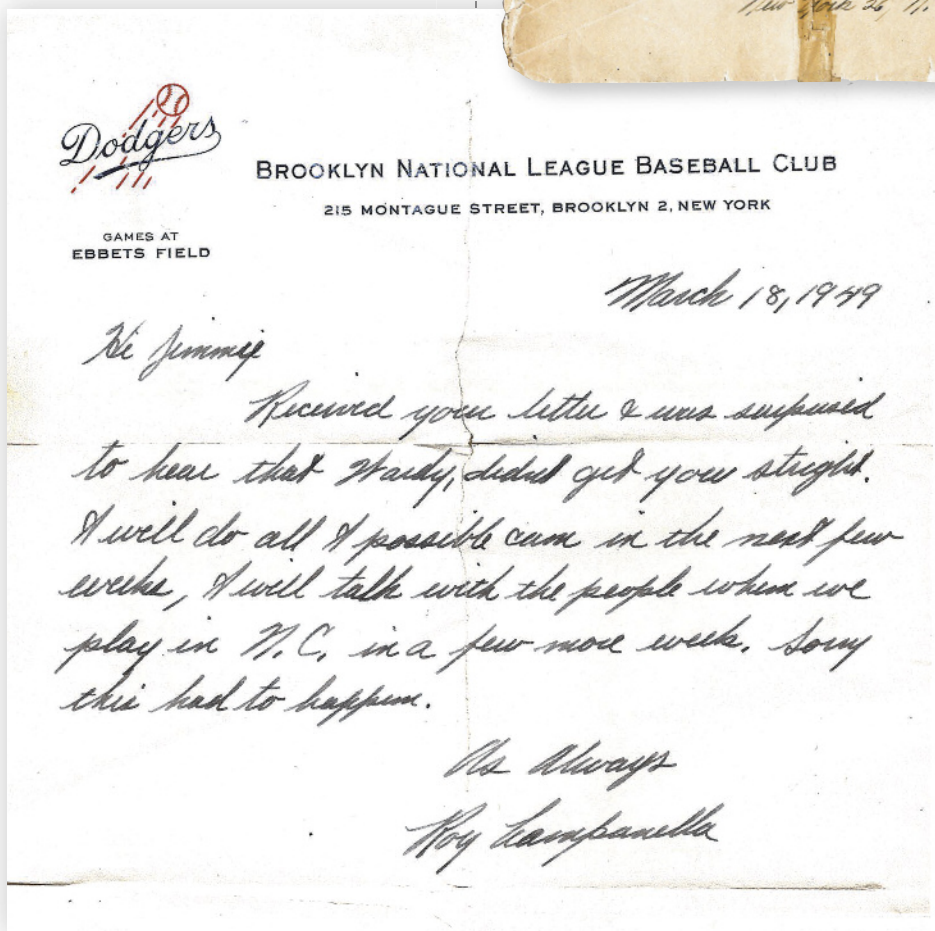 New York 26, N.
Dodgers
BROOKLYN NATIONAL LEAGUE BASEBALL CLUB
215 MONTAGUE STREET, BROOKLYN 2, NEW YORK
GAMES AT
EBBETS FIELD
March 18, 1949
Hi Jimmie
Received your letter & was surpused
to hear that Hardy, didnt get you stright.
I will do all I possible cam in the next few
weeks, I will talk with the people when we
play in N.C. in a few more week. Sorry
this had to happen.
As Always
Roy Campanella